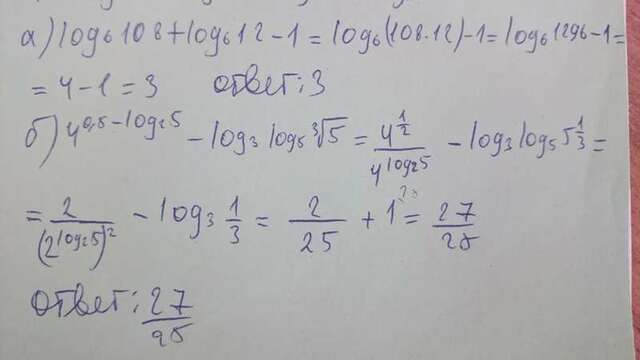 а) log₆108 + log₆12 - 1 = log₆(108·12) - 1 = log₆1296 - 1 =
= 4 - 1 = 3 ответ: 3
б) 4^(0,5 - log₂5) - log₃log₅∛5 = 4^(1/2) / 4^(log₂5) - log₃log₅5^(1/3) =
= 2/(2^(log₂5))² - log₃ 1/3 = 2/25 + 1 = 27/25
ответ: 27/25